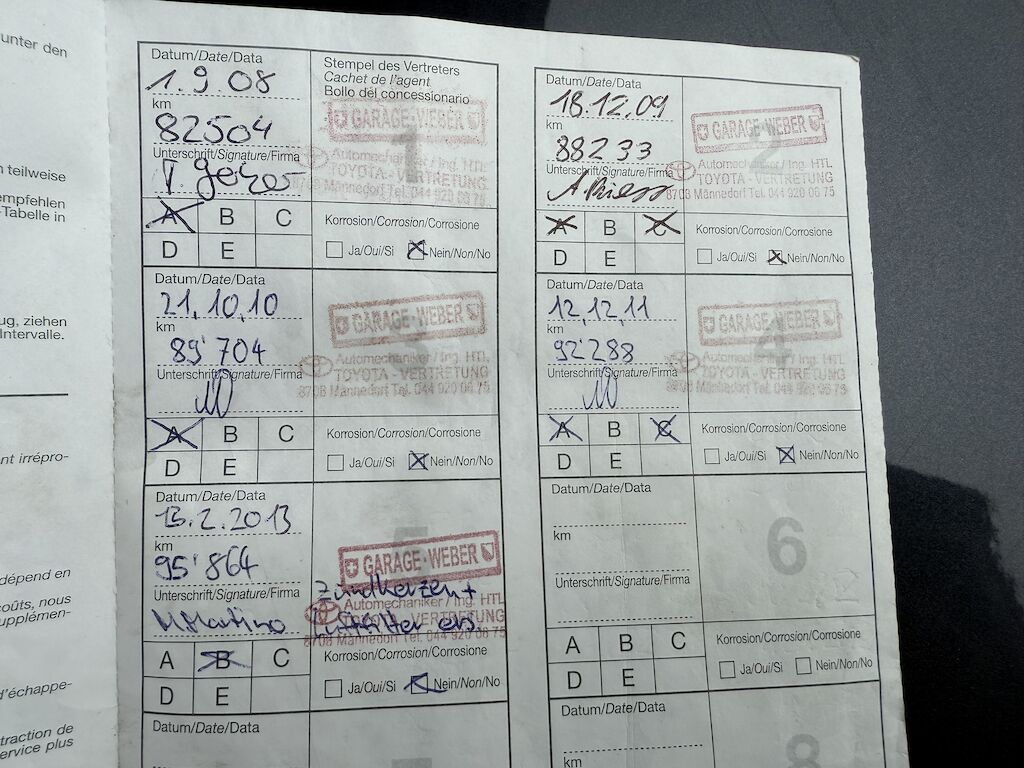 unter den
teilweise
empfehlen
-Tabelle in
ug, ziehen
Intervalle.
nt irrépro-
dépend en
coûts, nous
supplémen-
d'échappe-
traction de
ervice plus
Datum/Date/Data
1.9.08
km
82504
Unterschrift/Signature/Firma
A B C
D E
Stempel des Vertreters
Cachet de l'agent
Bollo del concessionario
1
GARAGE-WEBER
Automechaniker / Ing. HTL
TOYOTA - VERTRETUNG
8708 Männedorf Tel. 044 920 06 75
Korrosion/Corrosion/Corrosione
Ja/Oui/Si Nein/Non/No
Datum/Date/Data
18.12.09
km
88233
Unterschrift/Signature/Firma
A B C
D E
2
GARAGE-WEBER
Automechaniker / Ing. HTL
TOYOTA - VERTRETUNG
8708 Männedorf Tel. 044 920 06 75
Korrosion/Corrosion/Corrosione
Ja/Oui/Si Nein/Non/No
Datum/Date/Data
21.10.10
km
89'704
Unterschrift/Signature/Firma
A B C
D E
3
GARAGE-WEBER
Automechaniker / Ing. HTL
TOYOTA - VERTRETUNG
8708 Männedorf Tel. 044 920 06 75
Korrosion/Corrosion/Corrosione
Ja/Oui/Si Nein/Non/No
Datum/Date/Data
12.12.11
km
92'288
Unterschrift/Signature/Firma
A B C
D E
4
GARAGE-WEBER
Automechaniker / Ing. HTL
TOYOTA - VERTRETUNG
8708 Männedorf Tel. 044 920 06 75
Korrosion/Corrosion/Corrosione
Ja/Oui/Si Nein/Non/No
Datum/Date/Data
13.2.2013
km
95'864
Unterschrift/Signature/Firma
M.Martino
A B C
D E
5
GARAGE-WEBER
Zündkerzen +
Automechaniker / Ing. HTL
TOYOTA - VERTRETUNG
8708 Männedorf Tel. 044 920 06 75
Korrosion/Corrosion/Corrosione
Ja/Oui/Si Nein/Non/No
Datum/Date/Data
km
Unterschrift/Signature/Firma
A B C
D E
6
Korrosion/Corrosion/Corrosione
Ja/Oui/Si Nein/Non/No
Datum/Date/Data
7
Datum/Date/Data
km
8